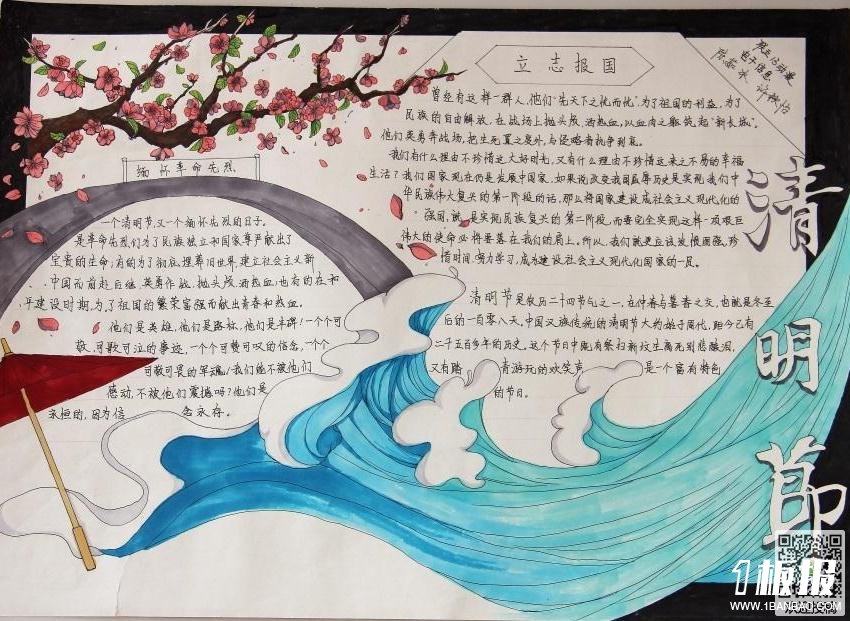 缅怀革命先烈
一个清明节,又一个缅怀先烈的日子。
是革命先烈们为了民族独立和国家尊严献出了
宝贵的生命;有的为了彻底埋葬旧世界,建立社会主义新
中国而前赴后继,英勇作战,抛头颅洒热血;也有的在和
平建设时期,为了祖国的繁荣富强而献出青春和热血。
他们是英雄,他们是路标,他们是丰碑!一个个可
敬,可歌可泣的事迹,一个个可赞可叹的信念,一个个
可敬可畏的军魂!我们能不被他们
感动,不被他们震撼吗?他们是
永恒的,因为信念永存。
立志报国
曾经有这样一群人,他们“先天下之忧而忧”,为了祖国的利益,为了
民族的自由解放,在战场上抛头颅,洒热血,以血肉之躯筑起“新长城”,
他们英勇奔战场,把生死置之度外,与侵略者抗争到底。
我们有什么理由不珍惜这大好时光,又有什么理由不珍惜这来之不易的幸福
生活?我们国家现在仍是发展中国家,如果说改变我国屈辱历史是实现我们中
华民族伟大复头的第一阶段的话,那么将国家建设成社会主义现代化的
强国,就是实现民族复头的第二阶段,而要完全实现这样一项艰巨
伟大的使命必将要落在我们的肩上,所以,我们就更应该发愤图强,珍
惜时间,努力学习,成为建设社会主义现代化国家的一员。
清明节是农历二十四节气之一,在仲春与暮春之交,也就是冬至
后的一百零八天,中国汉族传统的清明节大约始于周代,距今已有
二千五百多年的历史。这个节日中既有祭扫新坟生离死别悲酸泪,
又有踏 有游玩的欢笑声 是一个富有特色
的节日。
电子信息
清
明
节
1板报
WWW.1BANBAO.COM